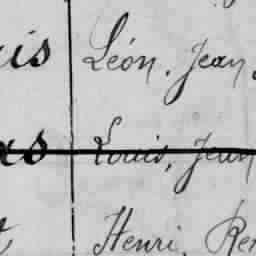 is Léon, Jean
as Louis, Jean
Henri, Re